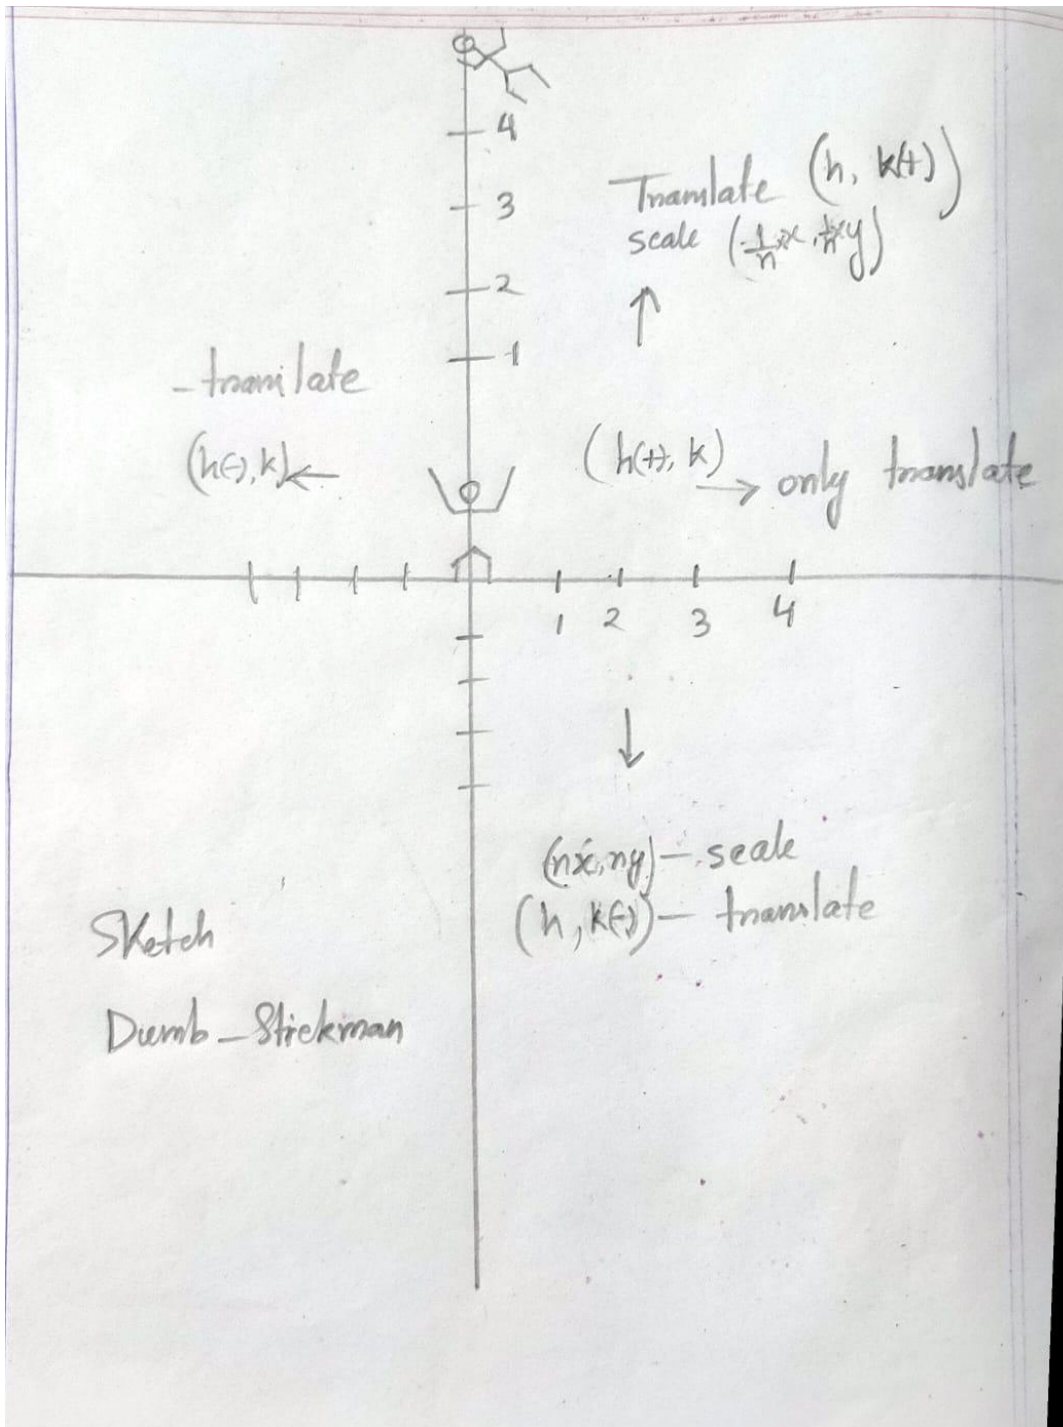 4
3
2
1
Translate (h, k(+))
scale (-1/n*x, 1/n*y)
↑
- translate
(h(-), k) ←
(h(+), k) → only translate
1 2 3 4
↓
(nx, ny) - scale
(h, k(-)) - translate
Sketch
Dumb - Stickman